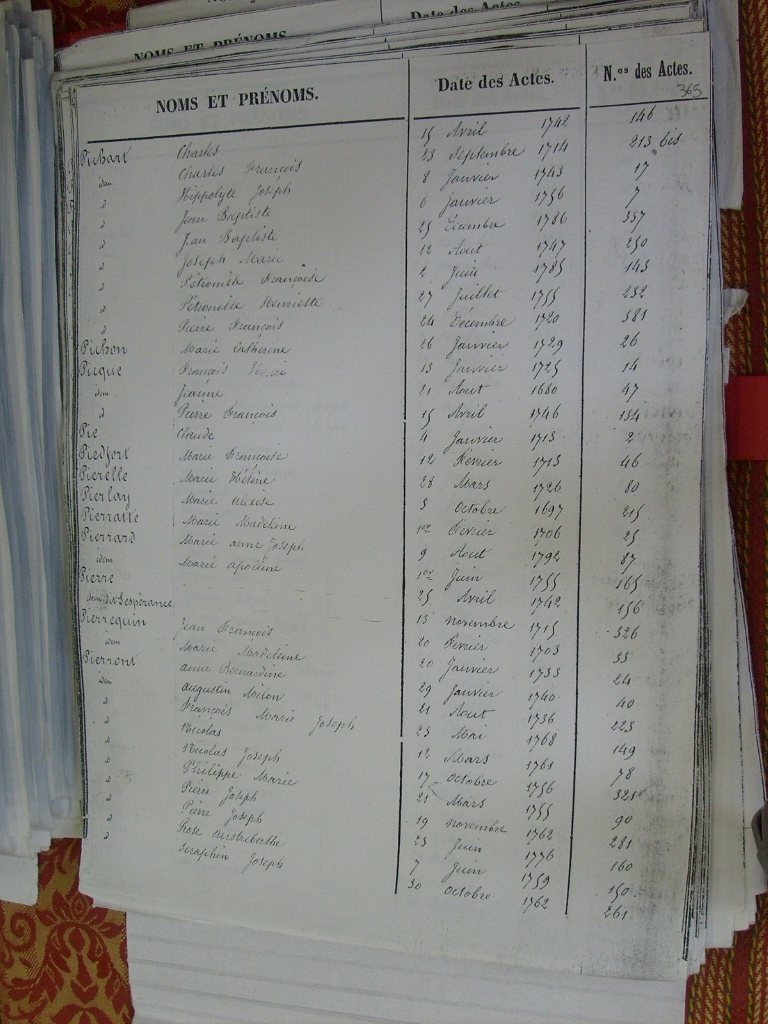 NOMS ET PRÉNOMS. Date des Actes. N.os des Actes.
365
Pichart Charles 15 Avril 1742 146
idem Charles François 23 Septembre 1714 213 bis
d Hippolyte Joseph 8 Janvier 1743 17
d Jean Baptiste 6 Janvier 1756 7
d Jean Baptiste 25 Décembre 1786 337
d Joseph Marie 22 Aout 1747 250
d Pétronille Françoise 2 Juin 1785 143
d Pétronille Henriette 27 Juillet 1755 232
d Pierre François 24 Décembre 1720 381
Pichon Marie Catherine 26 Janvier 1729 26
Picque François Henri 13 Janvier 1725 14
idem Jeanne 21 Aout 1680 47
d Pierre François 15 Avril 1746 134
Pie Claude 4 Janvier 1713 2
Piedfort Marie Françoise 12 Février 1713 46
Pierelle Marie Hélène 28 Mars 1726 80
Pierlay Marie 3 Octobre 1697 215
Pierratte Marie Madeleine 1er Février 1706 25
Pierrard Marie anne Joseph 9 Aout 1792 87
idem Marie apolline 1er Juin 1755 165
Pierre 25 Avril 1742 156
idem dit Lespérance 13 Novembre 1715 326
Pierrequin Jean François 20 Février 1703 33
idem Marie Madeleine 20 Janvier 1733 24
Pierront anne Bernardine 29 Janvier 1740 40
idem augustin Milon 21 Aout 1736 223
d François Marie Joseph 23 Mai 1768 149
d Nicolas 12 Mars 1761 78
d Nicolas Joseph 17 Octobre 1756 321
d Philippe Marie 21 Mars 1755 90
d Pierre Joseph 19 Novembre 1762 281
d Pierre Joseph 23 Juin 1776 160
d Rose austreberthe 7 Juin 1759 150
d Seraphin Joseph 30 Octobre 1762 261